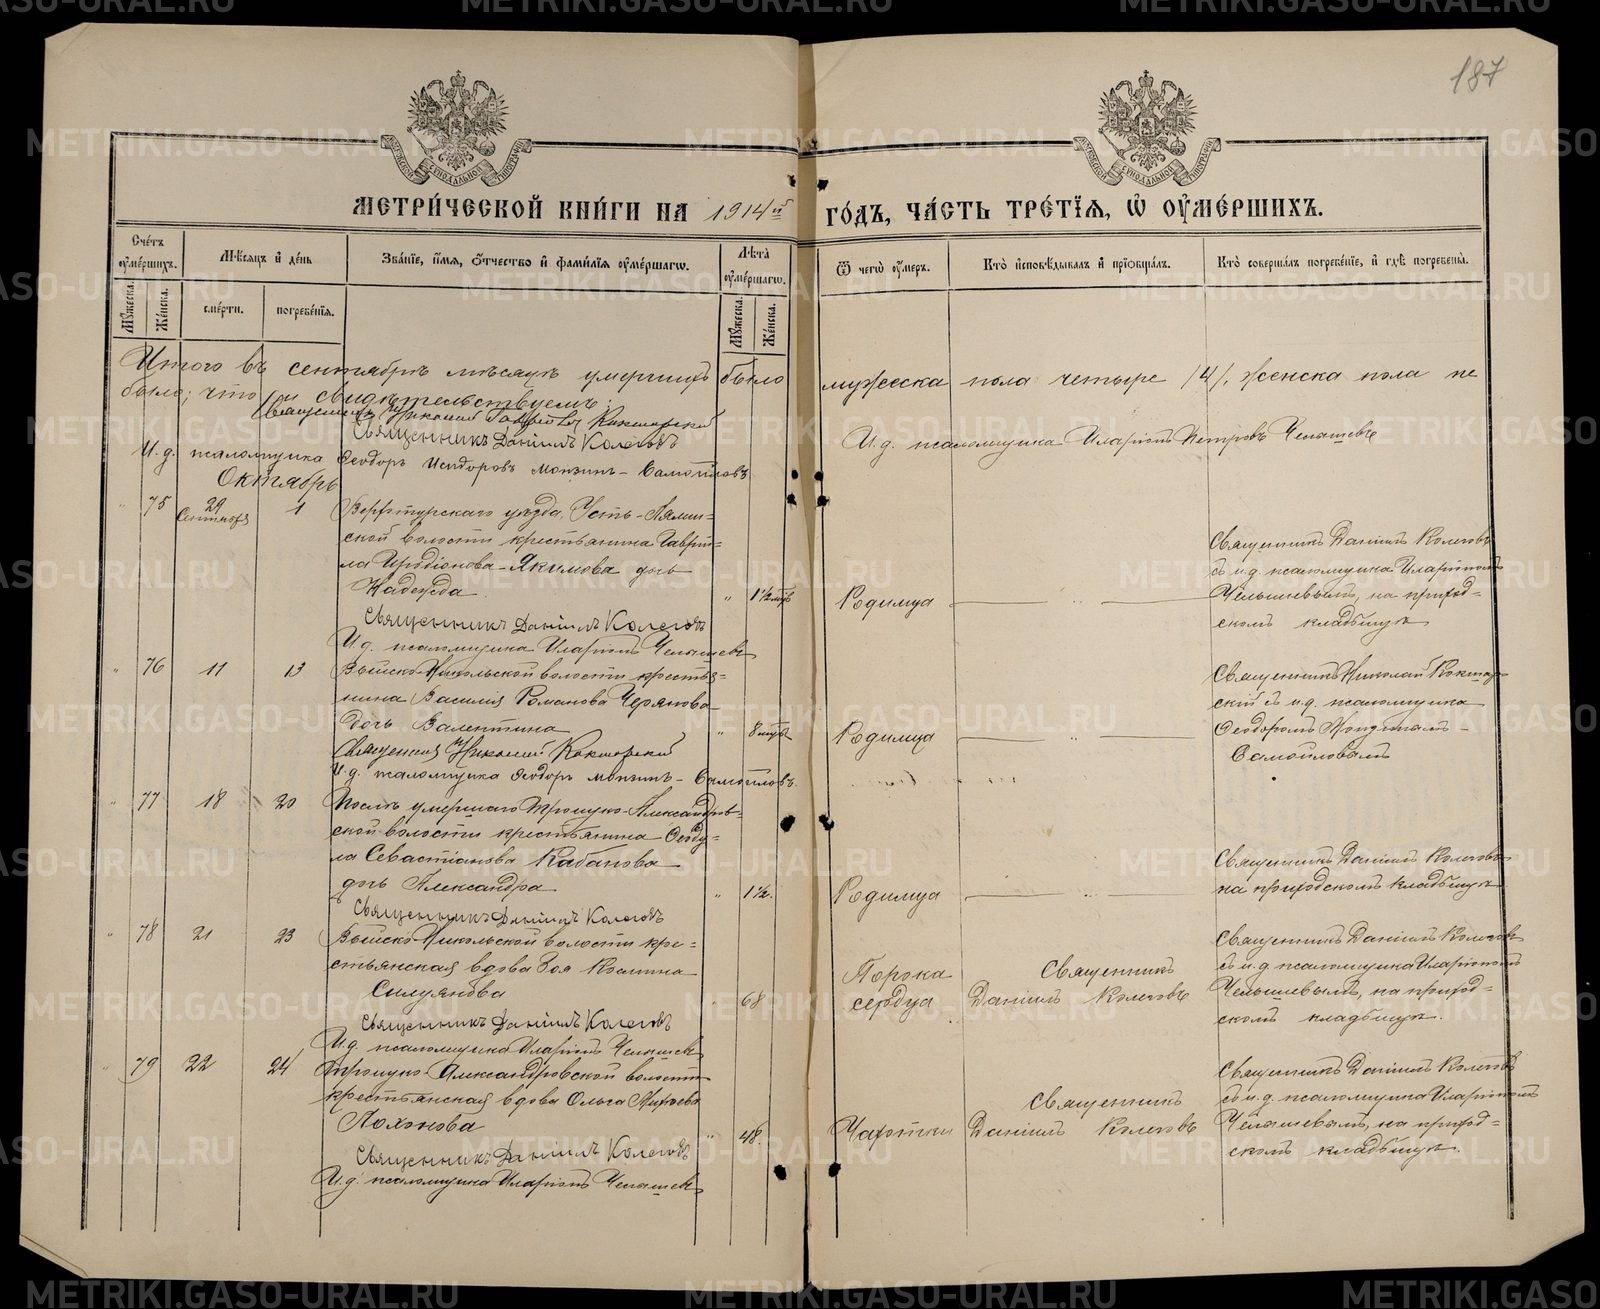 187
МЕТРИ́ЧЕСКОЙ КНИ́ГИ НА 1914й ГО́ДЪ, ЧА́СТЬ ТРЕ́ТІЯ, Ѡ ОУМЕ́РШИХЪ.
Сче́тъ оуме́ршихъ.
Мꙋ́жеска.
Же́нска.
Мѣ́сяцъ и де́нь
сме́рти.
погребе́нїя.
Зва́нїе, и́мя, о́тчество и фами́лїя оуме́ршагѡ.
Лѣ́та оуме́ршагѡ.
Мꙋ́жеска.
Же́нска.
Ѿ чегѡ̀ оу́меръ.
Кто̀ исповѣ́дывалъ и прїѡбща́лъ.
Кто̀ соверша́лъ погребе́нїе, и гдѣ̀ погребены̀.
Итого въ сентябрѣ мѣсяцѣ умершихъ было мужеска пола четыре /4/, женска пола не
было; что и свидѣтельствуемъ:
Священникъ Николай Кокшарскій
Священникъ Даніилъ Колеговъ
И.д. псаломщика Ѳеодоръ Исидоровъ Мокзинъ-Самойловъ
И.д. псаломщика Иларіонъ Петровъ Челышевъ
Октябрь
75 29 Сентября 1 Верхотурскаго уѣзда, Усть-Лялин=
ской волости крестьянина Гаврі=
ла Иродіонова Якимова дочь
Надежда. " 1½ мѣс Родимца
Священникъ Даніилъ Колеговъ
съ и.д. псаломщика Иларіономъ
Челышевымъ, на приход-
скомъ кладбищѣ
Священникъ Даніилъ Колеговъ
И.д. псаломщика Иларіонъ Челышевъ
" 76 11 13 Выйско-Никольской волости крестья=
нина Василія Романова Черянова
дочь Валентина " 8 мѣс Родимца
Священникъ Николай Кокшар-
скій съ и.д. псаломщика
Ѳеодоромъ Мокзинымъ-
Самойловымъ
Священникъ Николай Кокшарскій
И.д. псаломщика Ѳеодоръ Мокзинъ-Самойловъ.
" 77 18 20 Послѣ умершаго Троицко-Александров=
ской волости крестьянина Ѳеоду=
ла Севастіанова Кабанова
дочь Александра " 1½. Родимца
Священникъ Даніилъ Колеговъ
на приходскомъ кладбищѣ
Священникъ Даніилъ Колеговъ
" 78 21 23 Выйско-Никольской волости кре=
стьянская вдова Зоя Космина
Силуянова " 68 Порока сердца
Священникъ
Даніилъ Колеговъ
Священникъ Даніилъ Колеговъ
съ и.д. псаломщика Иларіономъ
Челышевымъ, на приход-
скомъ кладбищѣ.
Священникъ Даніилъ Колеговъ
И.д. псаломщика Иларіонъ Челышевъ
" 79 22 24 Троицко-Александровской волости
крестьянская вдова Ольга
Лохонова " 48. Чахотки
Священникъ
Даніилъ Колеговъ
Священникъ Даніилъ Колеговъ
съ и.д. псаломщика Иларіономъ
Челышевымъ, на приход-
скомъ кладбищѣ.
Священникъ Даніилъ Колеговъ
И.д. псаломщика Иларіонъ Челышевъ
METRIKI.GASO-URAL.RU